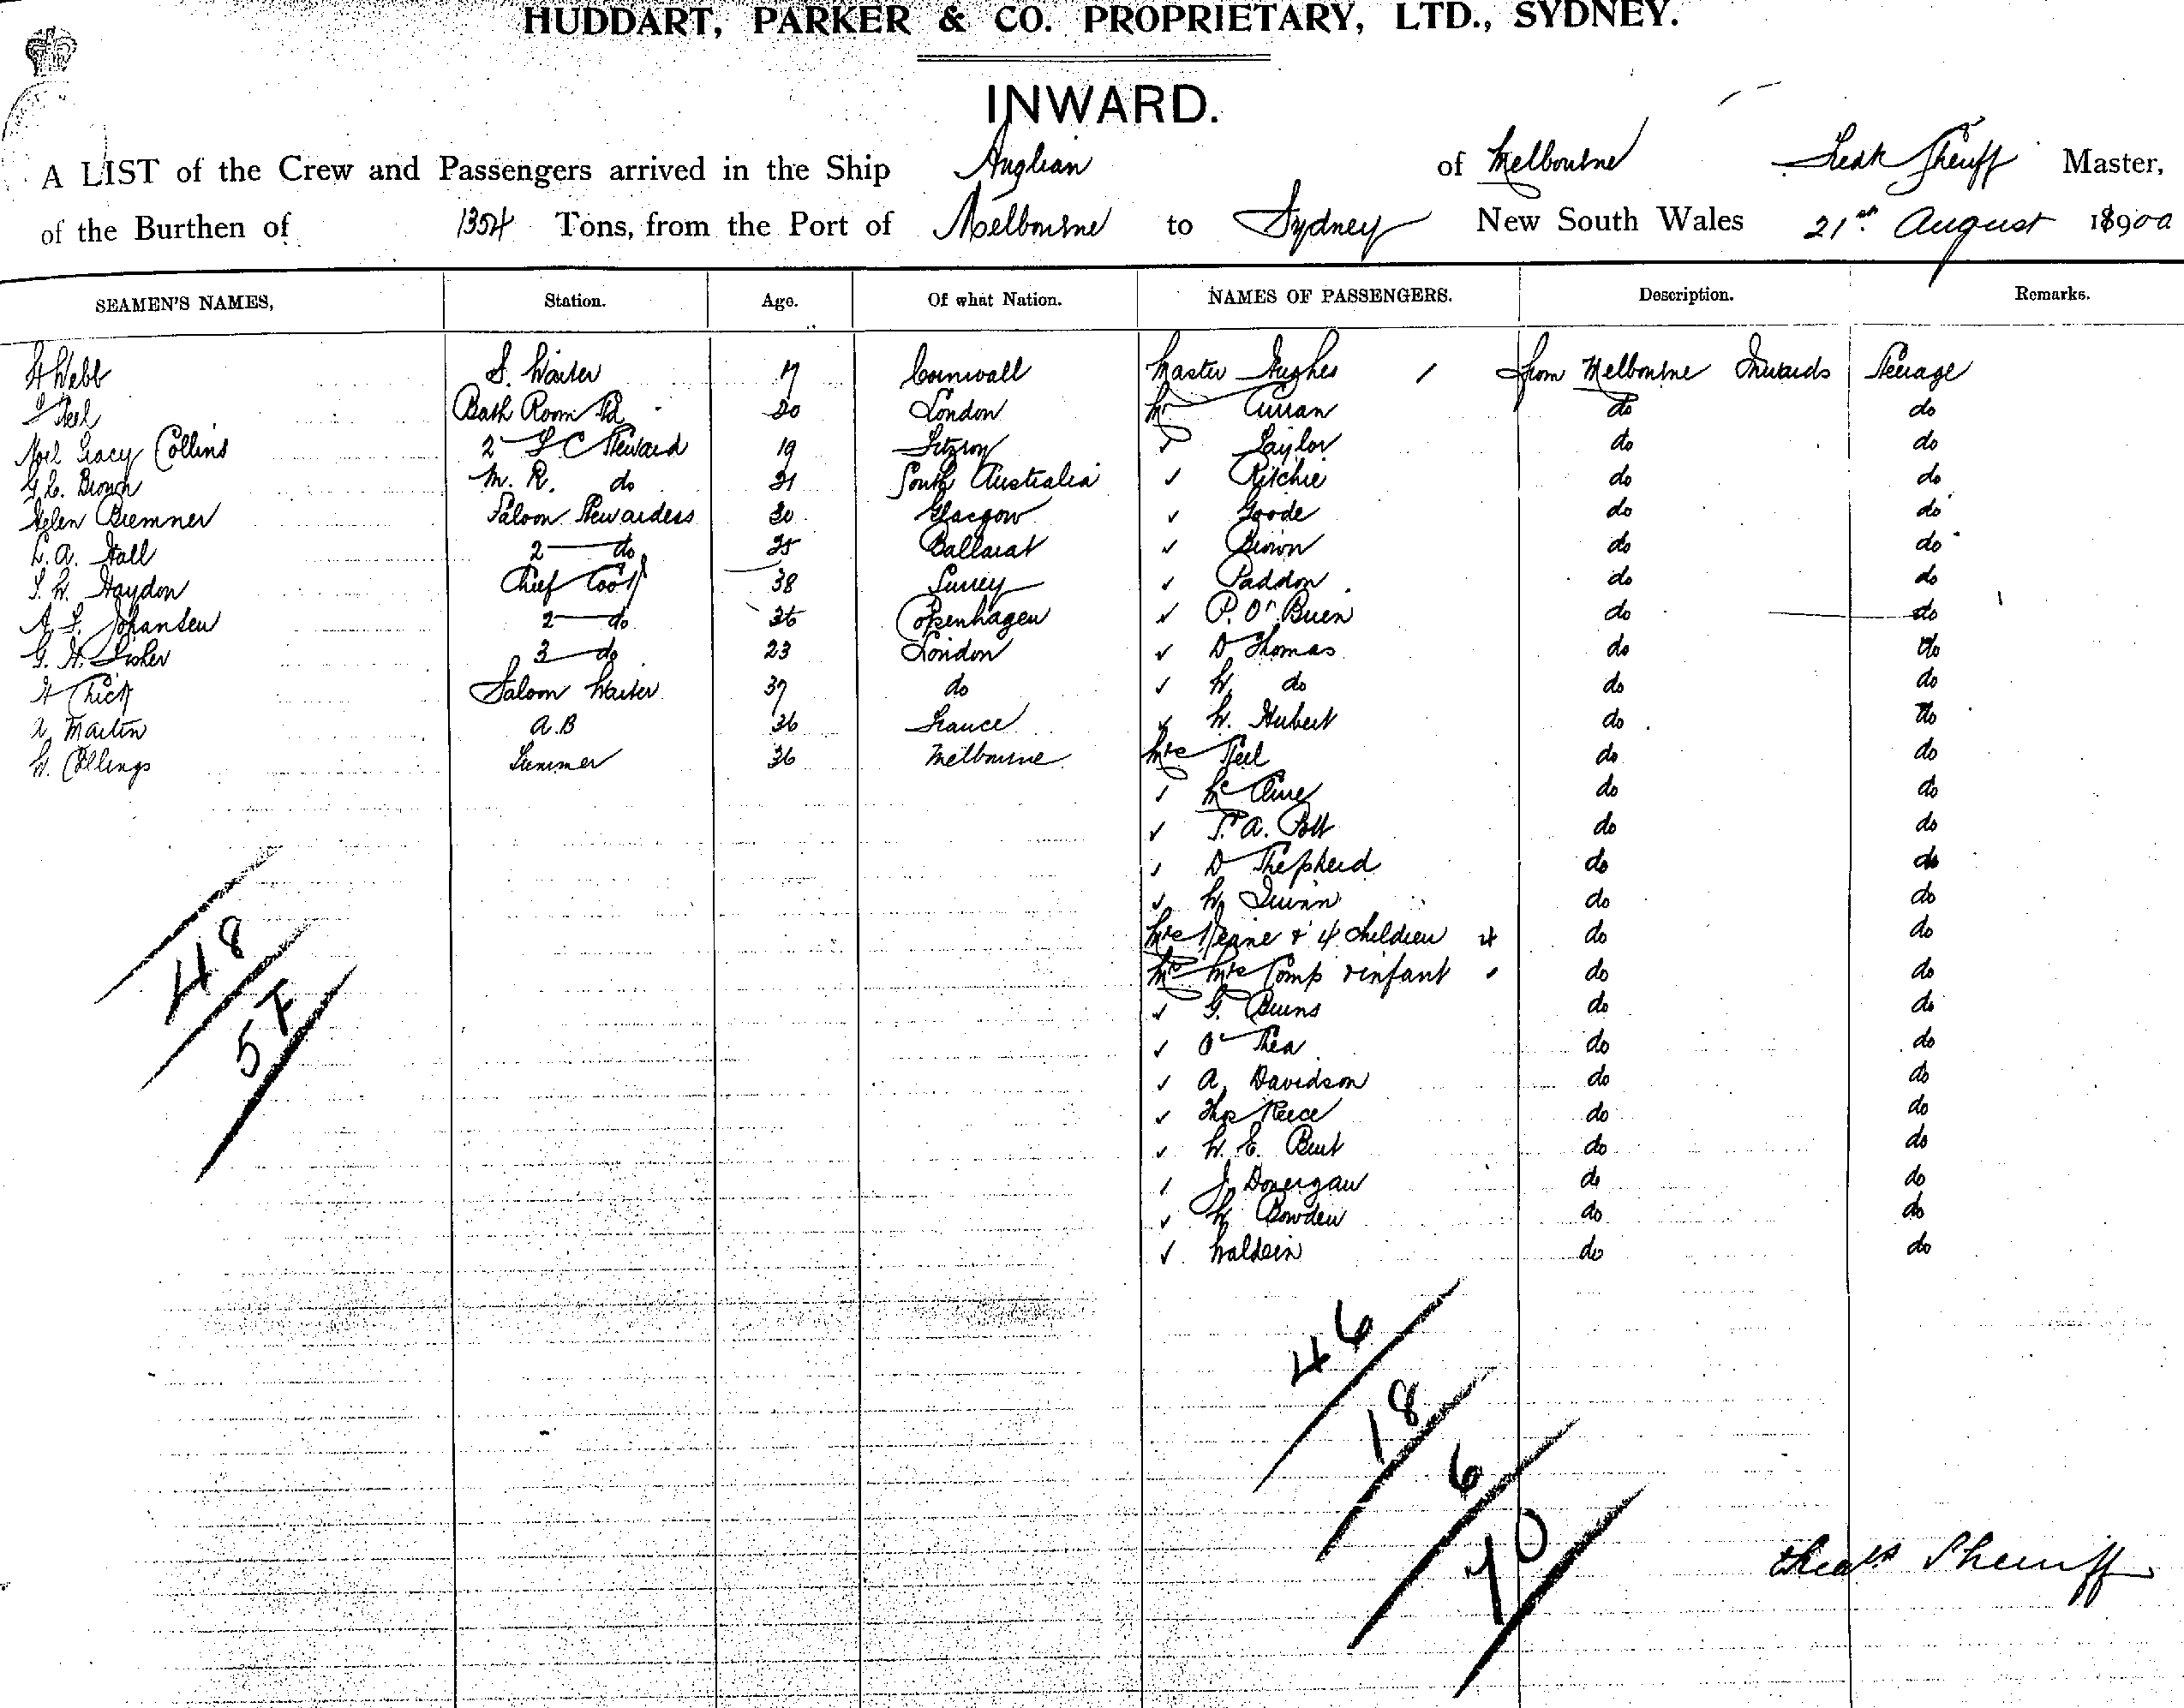 HUDDART, PARKER & CO. PROPRIETARY, LTD., SYDNEY.
INWARD.
A LIST of the Crew and Passengers arrived in the Ship Anglian of Melbourne Sheriff Master,
of the Burthen of 1354 Tons, from the Port of Melbourne to Sydney New South Wales 21st August 18900
SEAMEN'S NAMES, Station. Age. Of what Nation. NAMES OF PASSENGERS. Description. Remarks.
H Webb S. Waiter 17 Cornwall Master Hughes / from Melbourne Inwards Steerage
Steel Bath Room Sd 20 London Mr Curran do do
Noel Gracy Collins 2 S. C Steward 19 Fitzroy ✓ Taylor do do
G. C. Brough M. R. do 21 South Australia ✓ Ritchie do do
Helen Bremner Saloon Stewardess 30 Glasgow ✓ Goode do do
L. A. Hall 2 do 25 Ballarat ✓ Brown do do
S. W. Haydon Chief Cook 38 Surrey ✓ Paddon do do
A. F. Johansen 2 do 36 Copenhagen ✓ P. O' Brien do do
G. H. Fisher 3 do 23 London ✓ D Thomas do do
H Thick Saloon Waiter 37 do ✓ W. do do do
Martin A.B 36 France ✓ W. Hubert do do
W. Collings Trimmer 36 Melbourne Mrs Steel do do
✓ Mc Clure do do
✓ A. Pott do do
✓ D Shepherd do do
✓ W. Quinn do do
Mrs Keane & 4 children 4 do do
Mr Mrs Tomp & infant do do
✓ G. Burns do do
✓ O' Shea do do
✓ A. Davidson do do
✓ Thos Reece do do
✓ W. E. Burt do do
✓ J. Donergan do do
✓ W Bowden do do
✓ Waldein do do
48
57
46
18
6
70
Sheriff